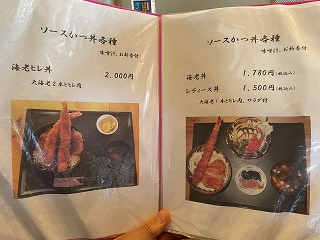 ソースかつ丼各種
味噌汁、お新香付
海老ヒレ丼 2,000円
大海老2本とヒレ肉
ソースかつ丼各種
味噌汁、お新香付
海老丼 1,780円(税込み)
レディース丼 1,500円(税込み)
大海老1本とヒレ肉、サラダ付